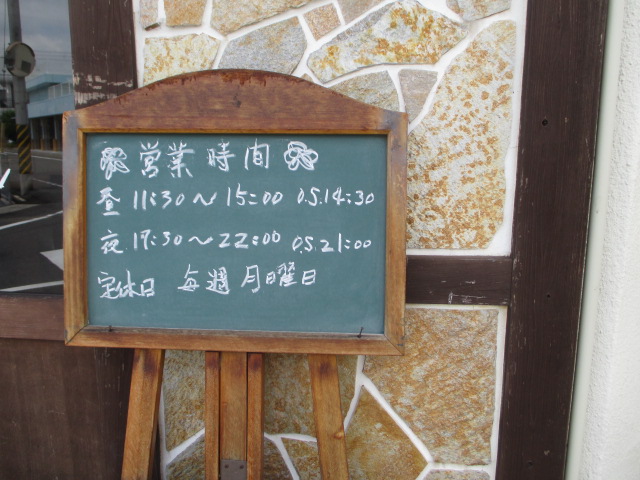 営業時間
昼 11:30～15:00 O.S.14:30
夜 17:30～22:00 O.S.21:00
定休日 毎週月曜日